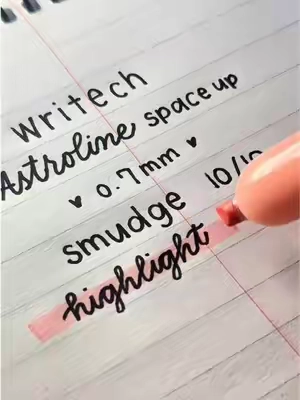 Writech
Astroline space up
♥ 0.7mm ♥
smudge 10/10
highlight